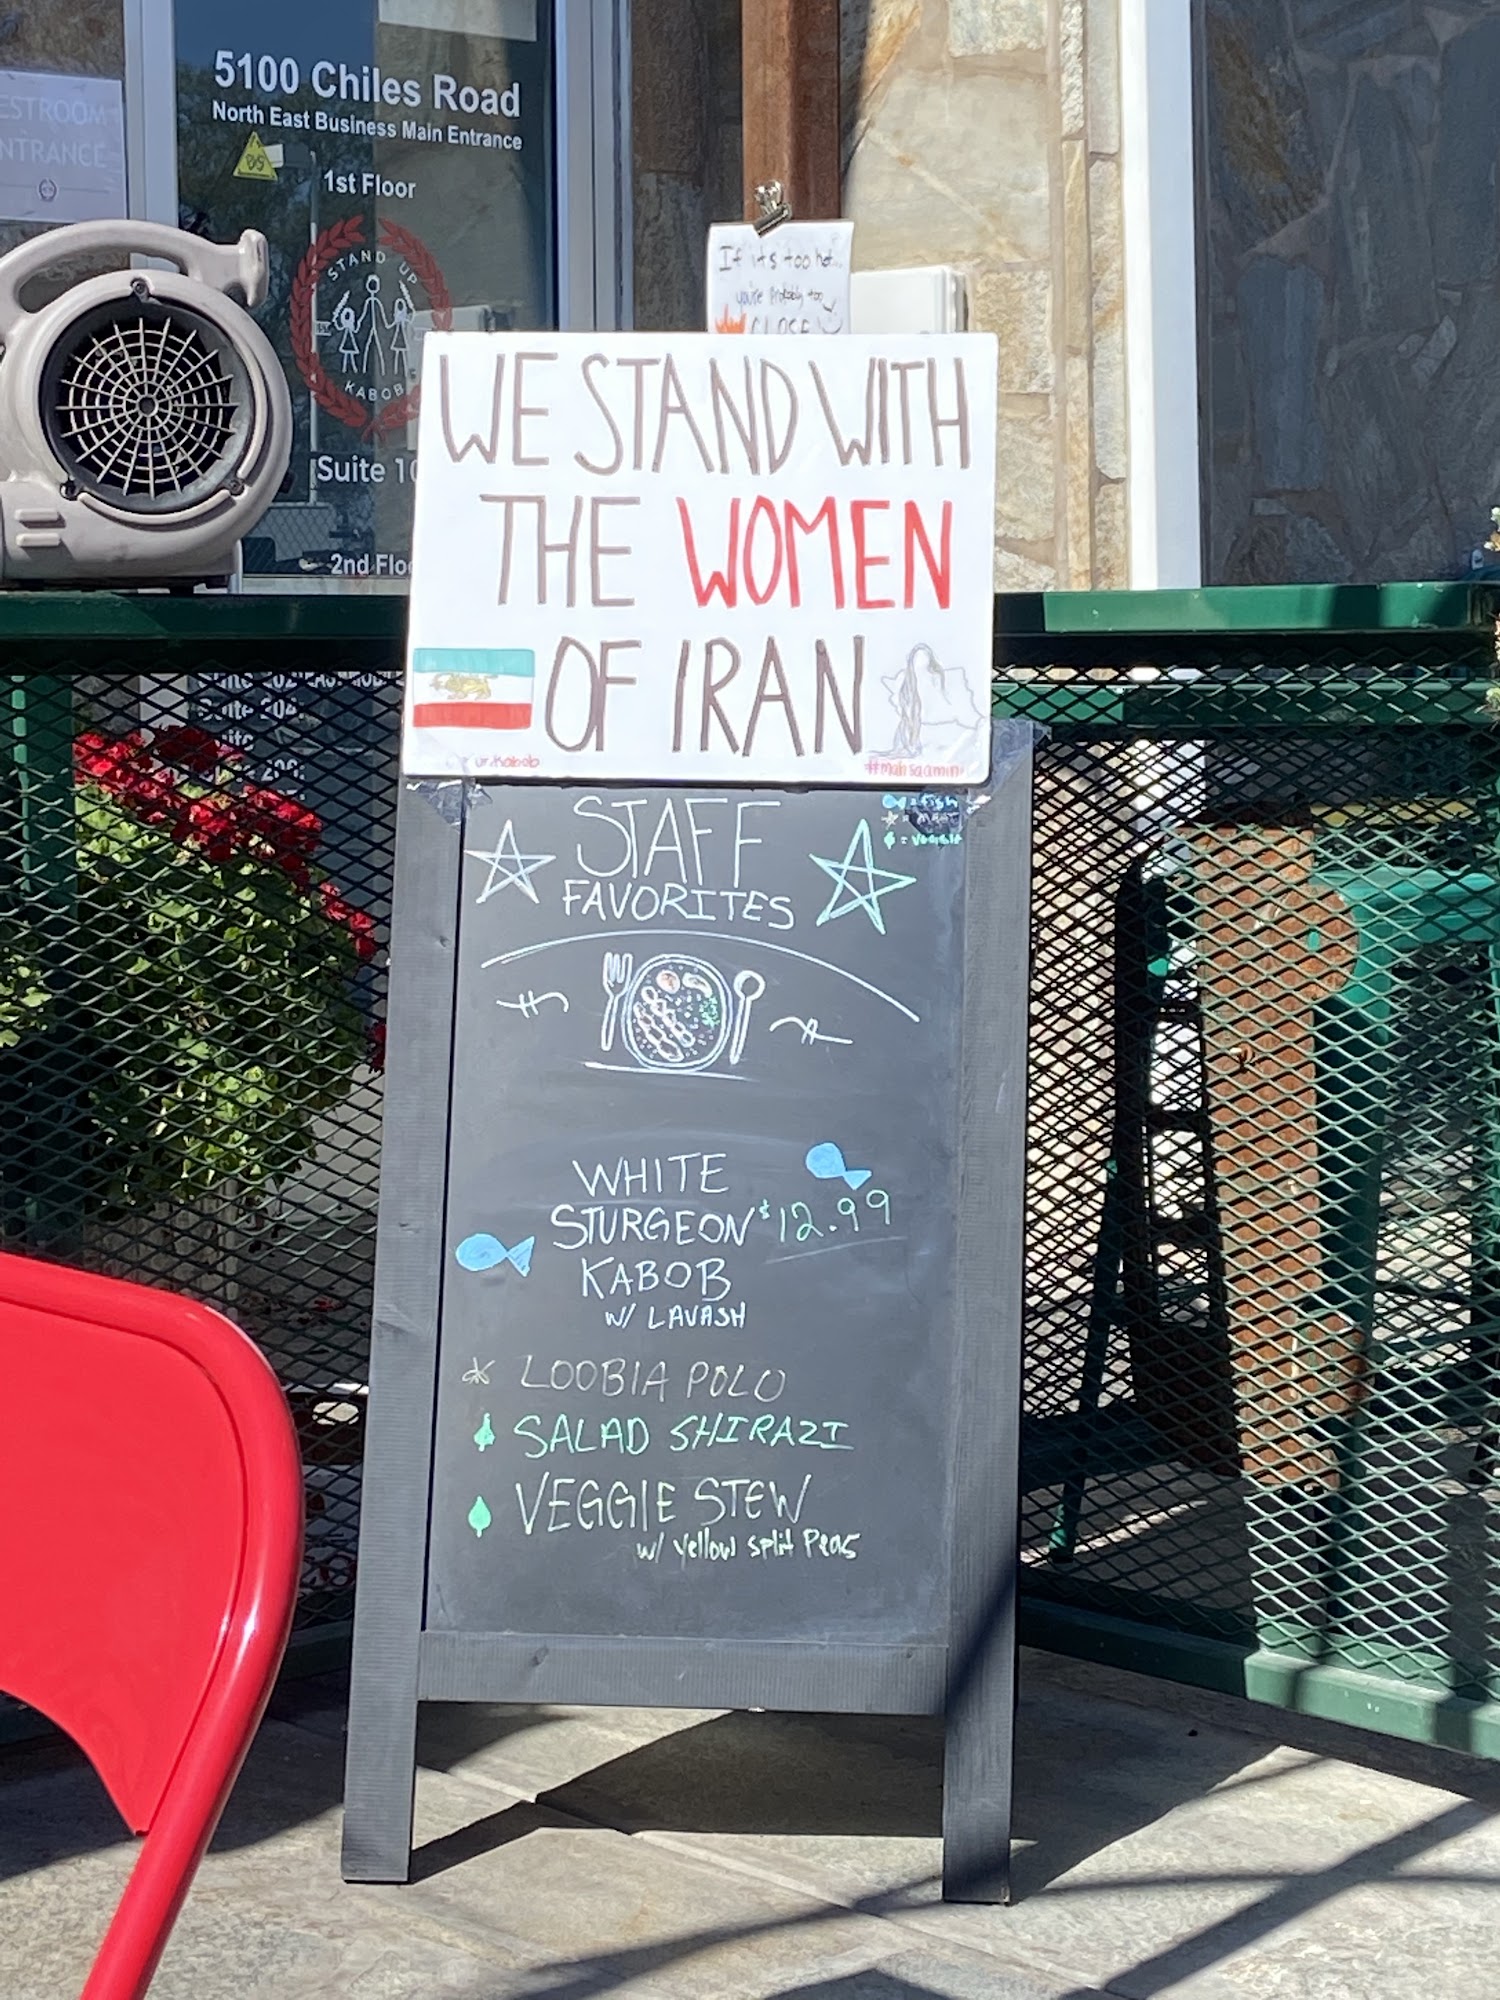 5100 Chiles Road
North East Business Main Entrance
1st Floor
STAND UP
KABOB
Suite
2nd
ESTROOM
NTRANCE
If it's too hot...
you're probably too
CLOSE
WE STAND WITH
THE WOMEN
OF IRAN
#mahsaamini
STAFF
FAVORITES
= fish
= meat
= veggie
WHITE
STURGEON $12.99
KABOB
W/ LAVASH
LOOBIA POLO
SALAD SHIRAZI
VEGGIE STEW
w/ yellow split Peas
Suite 204